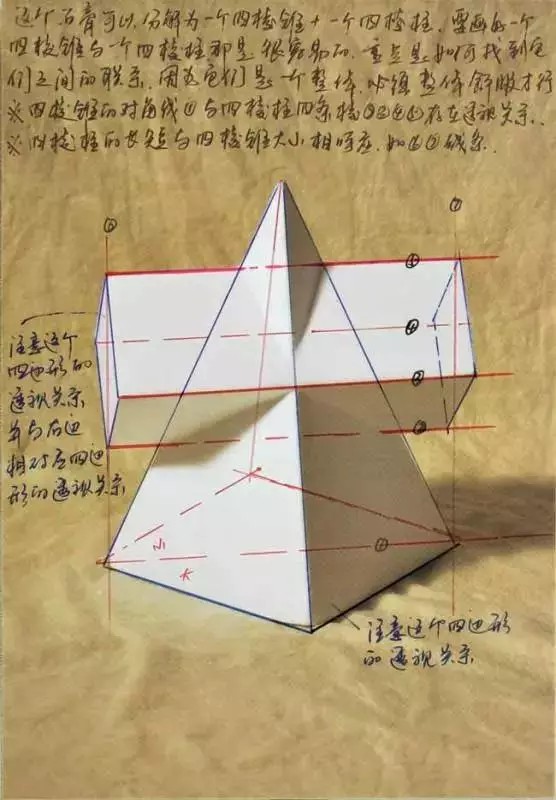 这个石膏可以分解为一个四棱锥+一个四棱柱,要画好一个
四棱锥与一个四棱柱那是很容易的.重点是如何找到它
们之间的联系.因为它们是一个整体,必须整体斜服才行
※四棱锥的对角线①与四棱柱四条棱⑤②④③存在透视关系.
※四棱柱的长短与四棱锥大小相呼应.如⑥⑦线条.
⑥
⑦
⑤
④
②
③
注意这个
四边形的
透视关系
并与右边
相对应四边
形的透视关系
小
大
①
注意这个四边形
的透视关系